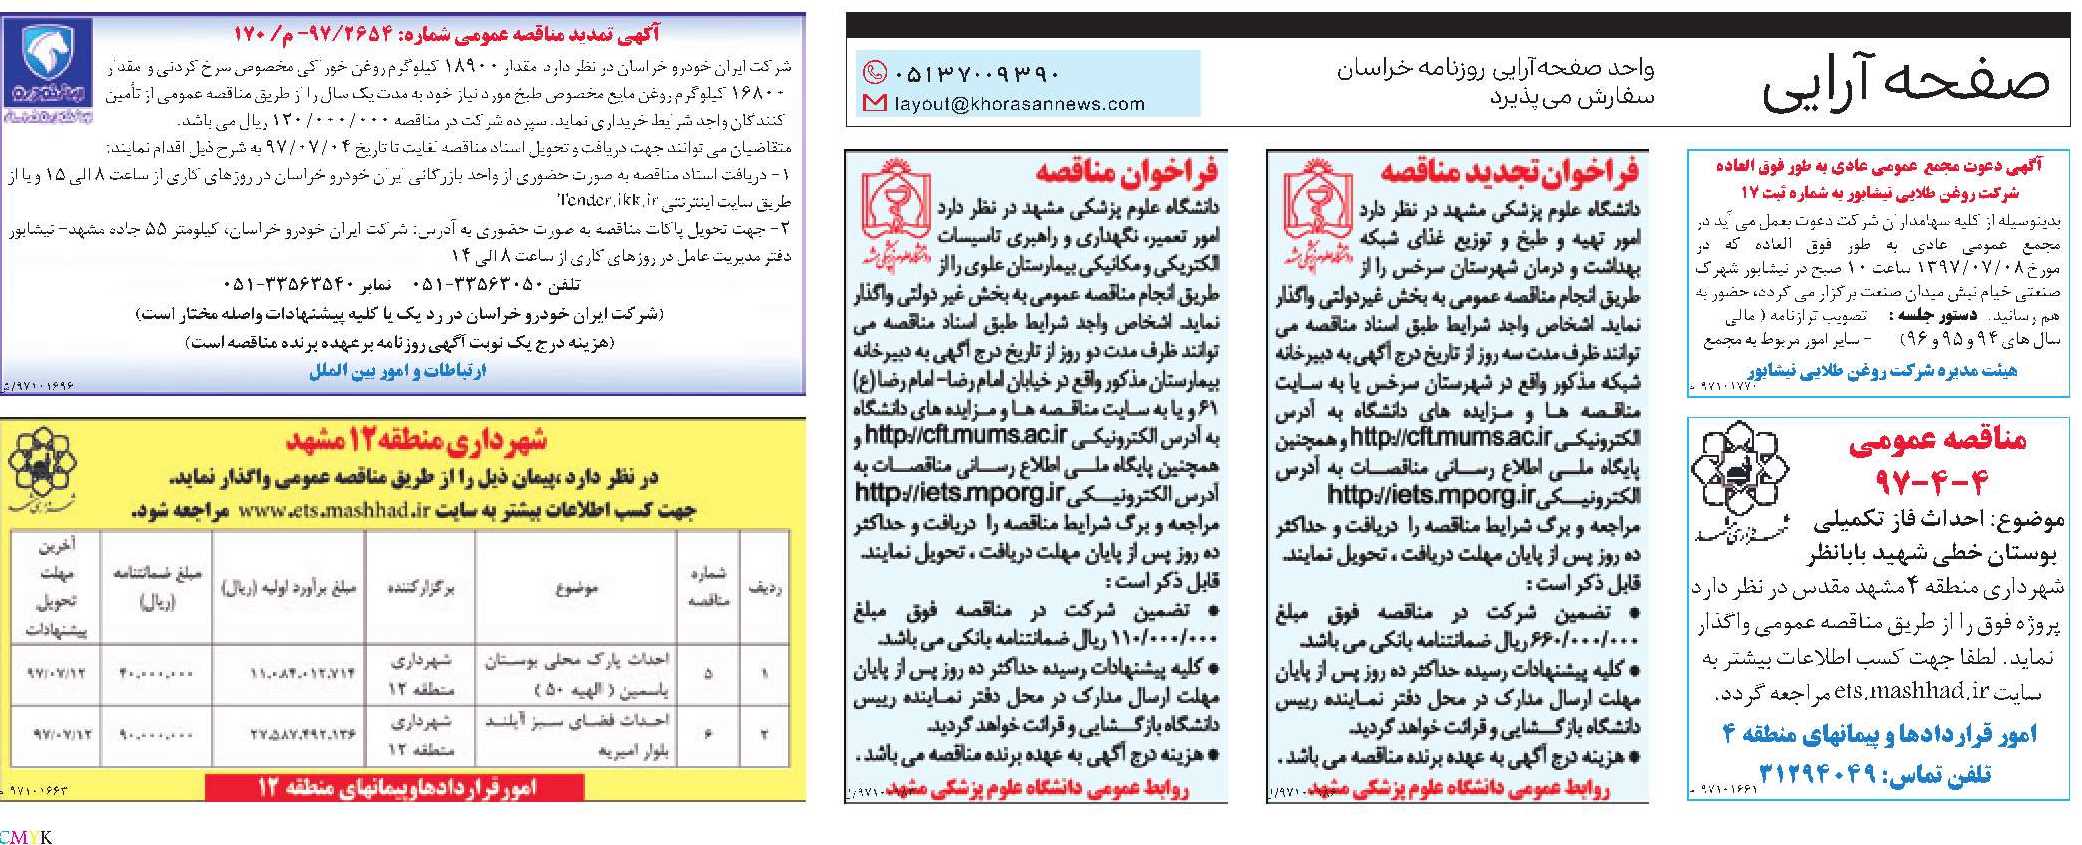 صفحه آرایی
واحد صفحه‌آرایی روزنامه خراسان
سفارش می‌پذیرد
۰۵۱۳۷۰۰۹۳۹۰
layout@khorasannews.com
آگهی دعوت مجمع عمومی عادی به طور فوق العاده
شرکت روغن طلایی نیشابور به شماره ثبت ۱۷
بدینوسیله از کلیه سهامداران شرکت دعوت بعمل می آید در
مجمع عمومی عادی به طور فوق العاده که در
مورخ ۱۳۹۷/۰۷/۰۸ ساعت ۱۰ صبح در نیشابور شهرک
صنعتی خیام نبش میدان صنعت برگزار می گردد، حضور به
هم رسانید. دستور جلسه : تصویب ترازنامه ( مالی
سال های ۹۴ و ۹۵ و ۹۶) - سایر امور مربوط به مجمع
هیئت مدیره شرکت روغن طلایی نیشابور
۹۷۱۰۱۷۷۰
مناقصه عمومی
۹۷-۴-۴
موضوع: احداث فاز تکمیلی
بوستان خطی شهید بابانظر
شهرداری منطقه ۴ مشهد مقدس در نظر دارد
پروژه فوق را از طریق مناقصه عمومی واگذار
نماید. لطفا جهت کسب اطلاعات بیشتر به
سایت ets.mashhad.ir مراجعه گردد.
امور قراردادها و پیمانهای منطقه ۴
تلفن تماس: ۳۱۲۹۴۰۴۹
۹۷۱۰۱۶۶۱
فراخوان تجدید مناقصه
دانشگاه علوم پزشکی مشهد در نظر دارد
امور تهیه و طبخ و توزیع غذای شبکه
بهداشت و درمان شهرستان سرخس را از
طریق انجام مناقصه عمومی به بخش غیردولتی واگذار
نماید. اشخاص واجد شرایط طبق اسناد مناقصه می
توانند ظرف مدت سه روز از تاریخ درج آگهی به دبیرخانه
شبکه مذکور واقع در شهرستان سرخس یا به سایت
مناقصه ها و مزایده های دانشگاه به آدرس
الکترونیکی http://cft.mums.ac.ir و همچنین
پایگاه ملی اطلاع رسانی مناقصات به آدرس
الکترونیکی http://iets.mporg.ir
مراجعه و برگ شرایط مناقصه را دریافت و حداکثر
ده روز پس از پایان مهلت دریافت ، تحویل نمایند.
قابل ذکر است :
• تضمین شرکت در مناقصه فوق مبلغ
۶۶۰/۰۰۰/۰۰۰ ریال ضمانتنامه بانکی می باشد.
• کلیه پیشنهادات رسیده حداکثر ده روز پس از پایان
مهلت ارسال مدارک در محل دفتر نماینده رییس
دانشگاه بازگشایی و قرائت خواهد گردید.
• هزینه درج آگهی به عهده برنده مناقصه می باشد .
روابط عمومی دانشگاه علوم پزشکی مشهد
فراخوان مناقصه
دانشگاه علوم پزشکی مشهد در نظر دارد
امور تعمیر، نگهداری و راهبری تاسیسات
الکتریکی و مکانیکی بیمارستان علوی را از
طریق انجام مناقصه عمومی به بخش غیر دولتی واگذار
نماید. اشخاص واجد شرایط طبق اسناد مناقصه می
توانند ظرف مدت دو روز از تاریخ درج آگهی به دبیرخانه
بیمارستان مذکور واقع در خیابان امام رضا- امام رضا(ع)
۶۱ و یا به سایت مناقصه ها و مزایده های دانشگاه
به آدرس الکترونیکی http://cft.mums.ac.ir و
همچنین پایگاه ملی اطلاع رسانی مناقصات به
آدرس الکترونیکی http://iets.mporg.ir
مراجعه و برگ شرایط مناقصه را دریافت و حداکثر
ده روز پس از پایان مهلت دریافت ، تحویل نمایند.
قابل ذکر است :
• تضمین شرکت در مناقصه فوق مبلغ
۱۱۰/۰۰۰/۰۰۰ ریال ضمانتنامه بانکی می باشد.
• کلیه پیشنهادات رسیده حداکثر ده روز پس از پایان
مهلت ارسال مدارک در محل دفتر نماینده رییس
دانشگاه بازگشایی و قرائت خواهد گردید.
• هزینه درج آگهی به عهده برنده مناقصه می باشد .
روابط عمومی دانشگاه علوم پزشکی مشهد
آگهی تمدید مناقصه عمومی شماره: ۹۷/۲۶۵۴- م/ ۱۷۰
شرکت ایران خودرو خراسان در نظر دارد مقدار ۱۸۹۰۰ کیلوگرم روغن خوراکی مخصوص سرخ کردنی و مقدار
۱۶۸۰۰ کیلوگرم روغن مایع مخصوص طبخ مورد نیاز خود به مدت یک سال را از طریق مناقصه عمومی از تأمین
کنندگان واجد شرایط خریداری نماید. سپرده شرکت در مناقصه ۱۲۰/۰۰۰/۰۰۰ ریال می باشد.
متقاضیان می توانند جهت دریافت و تحویل اسناد مناقصه لغایت تا تاریخ ۹۷/۰۷/۰۴ به شرح ذیل اقدام نمایند:
۱- دریافت اسناد مناقصه به صورت حضوری از واحد بازرگانی ایران خودرو خراسان در روزهای کاری از ساعت ۸ الی ۱۵ و یا از
طریق سایت اینترنتی Tender.ikk.ir
۲- جهت تحویل پاکات مناقصه به صورت حضوری به آدرس: شرکت ایران خودرو خراسان، کیلومتر ۵۵ جاده مشهد- نیشابور
دفتر مدیریت عامل در روزهای کاری از ساعت ۸ الی ۱۴
تلفن ۳۳۵۶۳۰۵۰-۰۵۱ نمابر ۳۳۵۶۳۵۴۰-۰۵۱
(شرکت ایران خودرو خراسان در رد یک یا کلیه پیشنهادات واصله مختار است)
(هزینه درج یک نوبت آگهی روزنامه بر عهده برنده مناقصه است)
ارتباطات و امور بین الملل
۹۷۱۰۱۶۹۶/ش
شهرداری منطقه ۱۲ مشهد
در نظر دارد ،پیمان ذیل را از طریق مناقصه عمومی واگذار نماید.
جهت کسب اطلاعات بیشتر به سایت www.ets.mashhad.ir مراجعه شود.
ردیف شماره مناقصه موضوع برگزارکننده مبلغ برآورد اولیه (ریال) مبلغ ضمانتنامه (ریال) آخرین مهلت تحویل پیشنهادات
۱ ۵ احداث پارک محلی بوستان یاسمین ( الهیه ۵۰ ) شهرداری منطقه ۱۲ ۱۱.۰۸۴.۰۱۲.۷۱۴ ۴۰۰.۰۰۰.۰۰۰ ۹۷/۰۷/۱۲
۲ ۶ احداث فضای سبز آیلند بلوار امیریه شهرداری منطقه ۱۲ ۲۷.۵۸۷.۴۹۲.۱۳۶ ۹۰۰.۰۰۰.۰۰۰ ۹۷/۰۷/۱۲
امور قراردادها و پیمانهای منطقه ۱۲
۹۷۱۰۱۶۶۳
CMYK